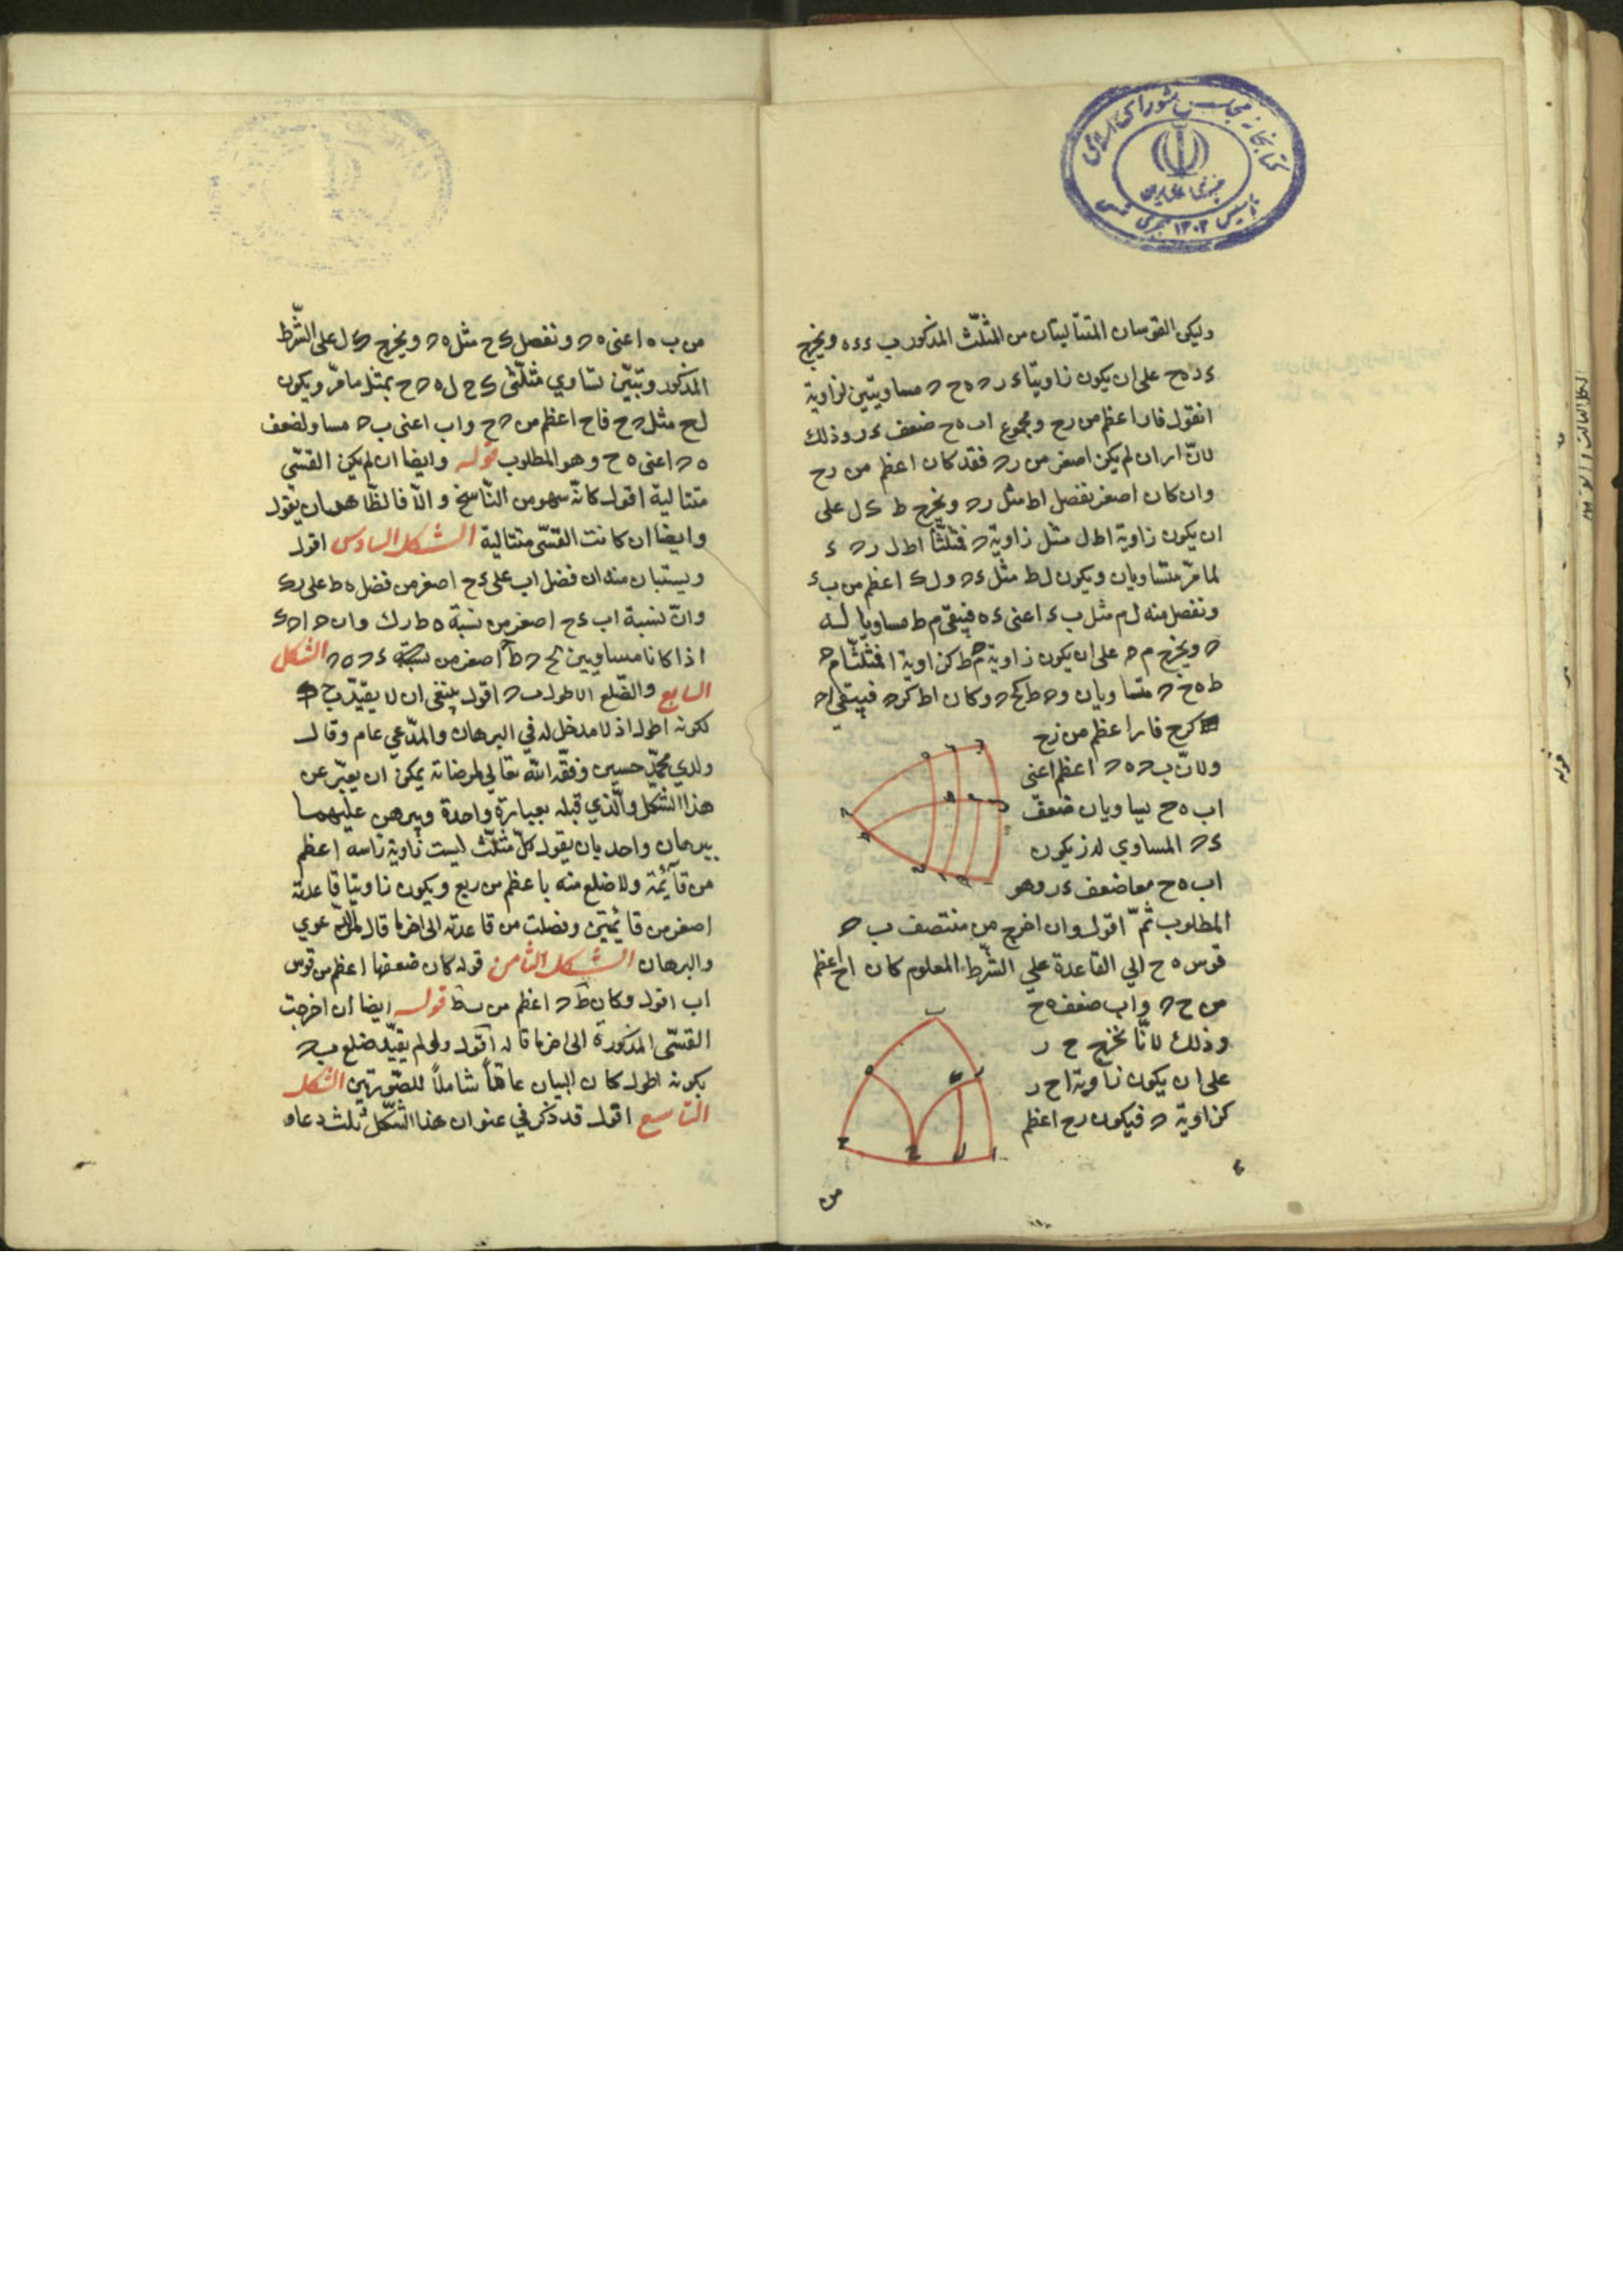 کتابخانه مجلس شورای اسلامی
تأسیس ۱۳۰۲ هجری شمسی
وليكن القوسان المتتاليتان من المثلّث المذكور ب ء ء ه ويخرج
ء ر ه ح على ان يكون زاويتا ء ر ﺣ ه ح ﺣ مساويتين لزاوية
ا نقول فار اعظم من رح ومجموع اب ه ح ضعف ء ر وذلك
لانّ ار ان لم يكن اصغر من ر ﺣ فقد كان اعظم من رح
وان كان اصغر نفصل اط مثل ر ﺣ ويخرج ط ك ل على
ان يكون زاوية اط ل مثل زاوية ﺣ فمثلّثا اط ل ر ﺣ ء
لما مرّ متساويان ويكون ل ط مثل ء ﺣ و ل ك اعظم من ب ء
ونفصل منه ل م مثل ب ء اعنى ء ه فيبقى م ط مساويا له
ﺣ ويخرج م ﺣ على ان يكون زاوية م ﺣ ط كزاوية ا فمثلّثا م ﺣ
ط ه ح ﺣ متساويان و ﺣ ط كح ﺣ وكان اط كر ﺣ فيبقى ا ﺣ
كرح فار اعظم من رح
ولانّ ب ﺣ ه ﺣ اعظم اعنى
اب ه ح يساويان ضعف
ء ﺣ المساوى لدز يكون
اب ه ح معا ضعف ء ر وهو
المطلوب ثمّ اقول وان اخرج من منتصف ب ﺣ
قوس ه ح الي القاعدة علي الشّرط المعلوم كان اح اعظم
من ح ﺣ واب ضعف ه ح
وذلك لانّا نخرج ح ر
على ان يكون زاوية ا ح ر
كزاوية ﺣ فيكون رح اعظم
من
من ب ه اعنى ه ﺣ ونفصل ك ح مثل ه ﺣ ويخرج ك ل على الشّرط
المذكور وتبيّن تساوي مثلّثى ك ح ل ه ﺣ ح بمثل ما مرّ ويكون
ل ح مثل ﺣ ح فاح اعظم من ﺣ ح واب اعنى ب ﺣ مساو لضعف
ه ﺣ اعنى ه ح وهو المطلوب قوله وايضا ان لم يكن القسّى
متتالية اقول كانّه سهو من النّاسخ والّا فالظّاهر ان يقول
وايضا ان كانت القسّى متتالية الشكل السادس اقول
ويستبان منه ان فضل اب على ء ح اصغر من فضل ه ط على ر ك
وانّ نسبة اب ء ح اصغر من نسبة ه ط رك وان ﺣ ا ﺣ ء
اذا كانا مساويين لح ﺣ ط اصغر من نسبة ء ﺣ ه ﺣ الشكل
السابع والضّلع الاطول ب ﺣ اقول ينبغى ان لا يقيّد ب ﺣ
لكونه اطول اذ لا مدخل له في البرهان والمدّعي عام وقال
ولدي محمّد حسين وفقّه اللّه تعالي لمرضاته يمكن ان يعبّر عن
هذا الشّكل والّذي قبله بعبارة واحدة ويبرهن عليهما
ببرهان واحد بان يقول كلّ مثلّث ليست زاوية راسه اعظم
من قائمة ولا ضلع منه باعظم من ربع ويكون زاويتا قاعدته
اصغر من قائمتين وفصلت من قاعدته الى اخر ما قال في الدّعوي
والبرهان الشكل الثامن قوله كان ضعفها اعظم من قوس
اب اقول وكان ط ﺣ اعظم من ب ط قوله ايضا ان اخرجت
القسّى المذكورة الى اخر ما قال اقول ولو لم يقيّد ضلع ب ﺣ
بكونه اطول كان البيان عامّاً شاملاً للصّورتين الشكل
التاسع اقول قد ذكر في عنوان هذا الشّكل ثلث دعاو